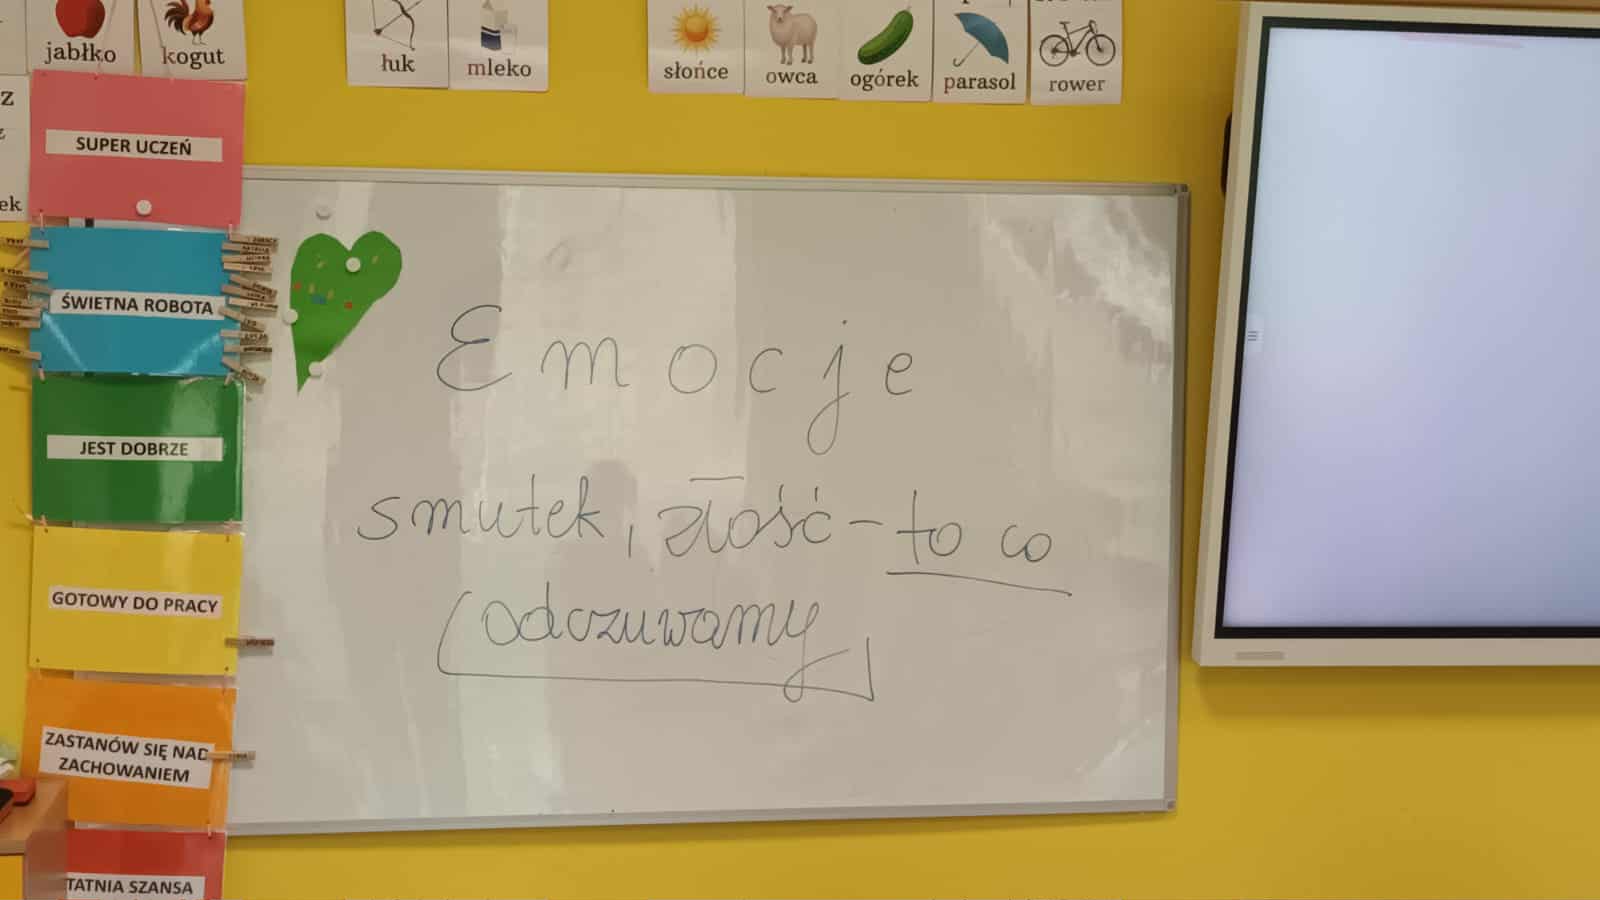 jabłko
kogut
łuk
mleko
słońce
owca
ogórek
parasol
rower
z
z
ek
SUPER UCZEŃ
ŚWIETNA ROBOTA
JEST DOBRZE
GOTOWY DO PRACY
ZASTANÓW SIĘ NAD
ZACHOWANIEM
TATNIA SZANSA
Emocje
smutek, złość - to co
odczuwamy